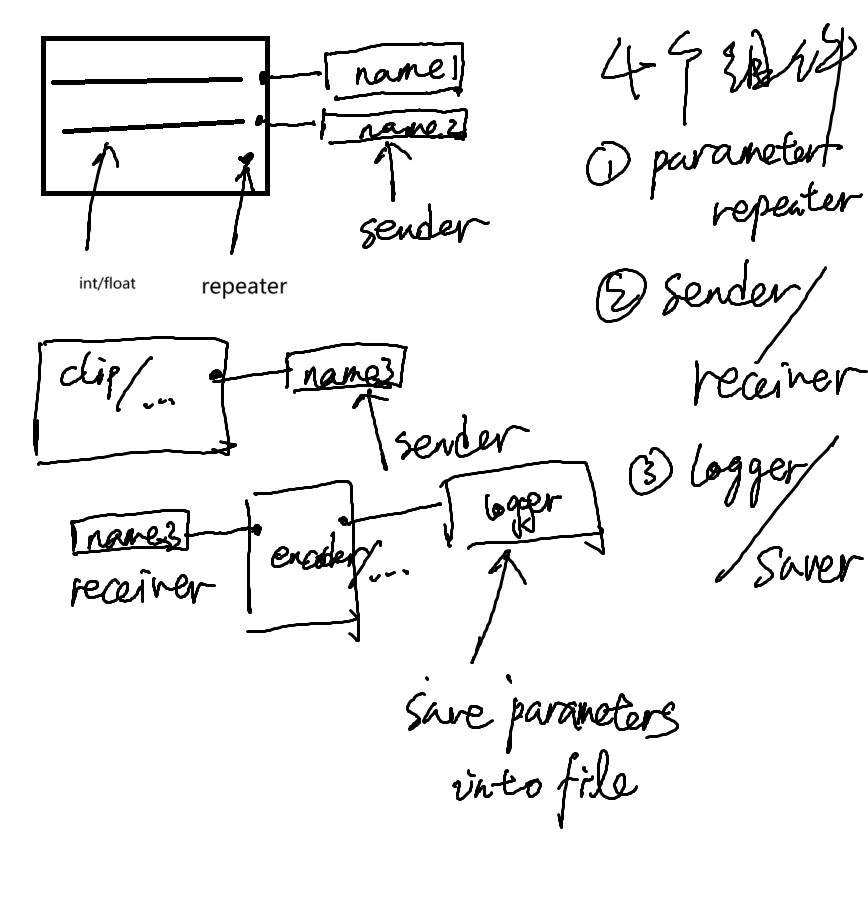 name1
name2
sender
int/float
repeater
clip/...
name3
sender
name3
receiver
encoder/...
logger
save parameters
into file
4个组件
① parameter
repeater
② sender/
receiver
③ logger/
saver